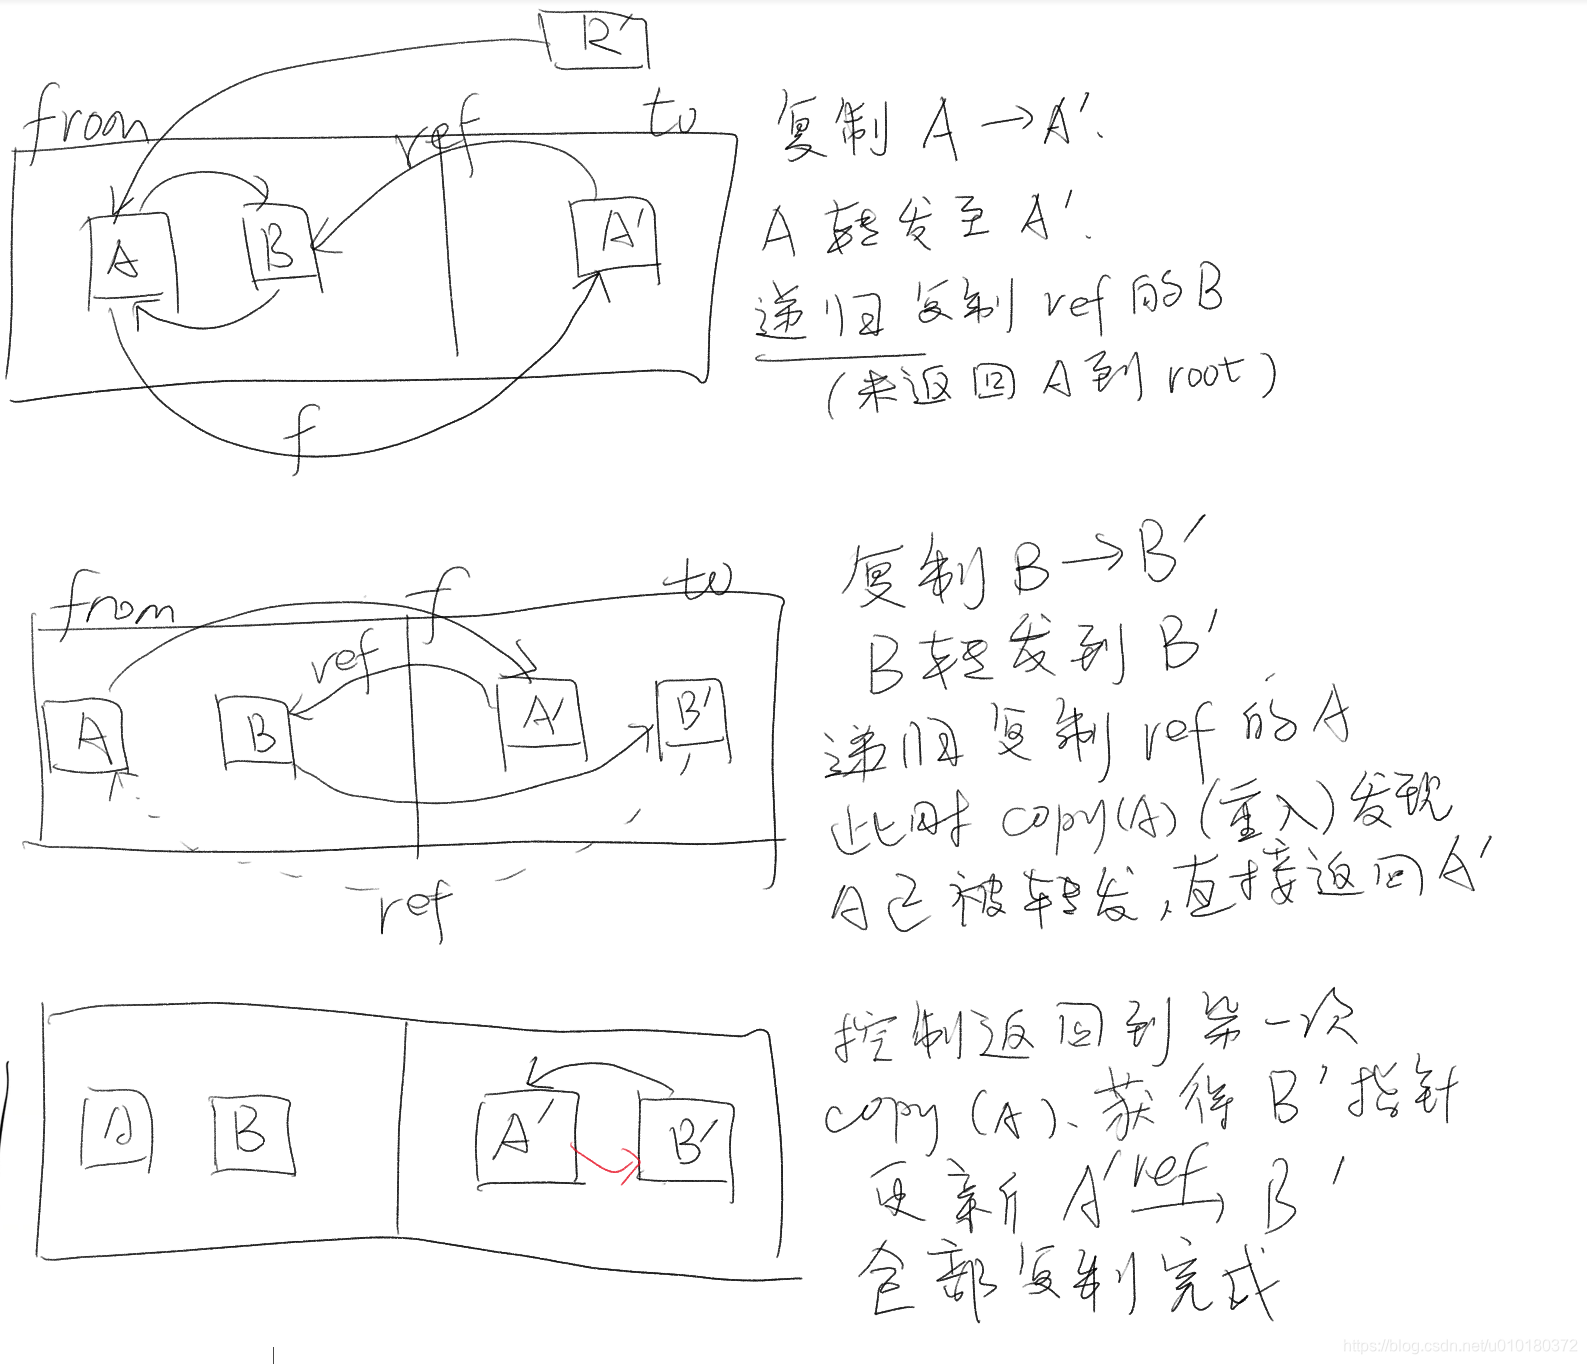 R'
from
to
ref
A
B
A'
f
复制 A → A'.
A 转发至 A'.
递归复制 ref 的 B
(未返回 A 到 root)
from
f
to
ref
A
B
A'
B'
ref
复制 B → B'
B 转发到 B'
递归复制 ref 的 A
此时 copy(A) (重入) 发现
A 已被转发,直接返回 A'
A
B
A'
B'
控制返回到第一次
copy (A)、获得 B' 指针
更新 A' ref → B'
全部复制完成
https://blog.csdn.net/u010180372